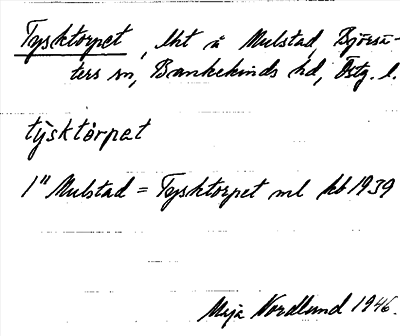 Tysktorpet, lht å Mulstad, Björsä-
ters sn, Bankekinds hd, Östg. l.
tỳsktòrpet
1" Mulstad = Tysktorpet ml kb 1939
Maja Nordlund 1946.